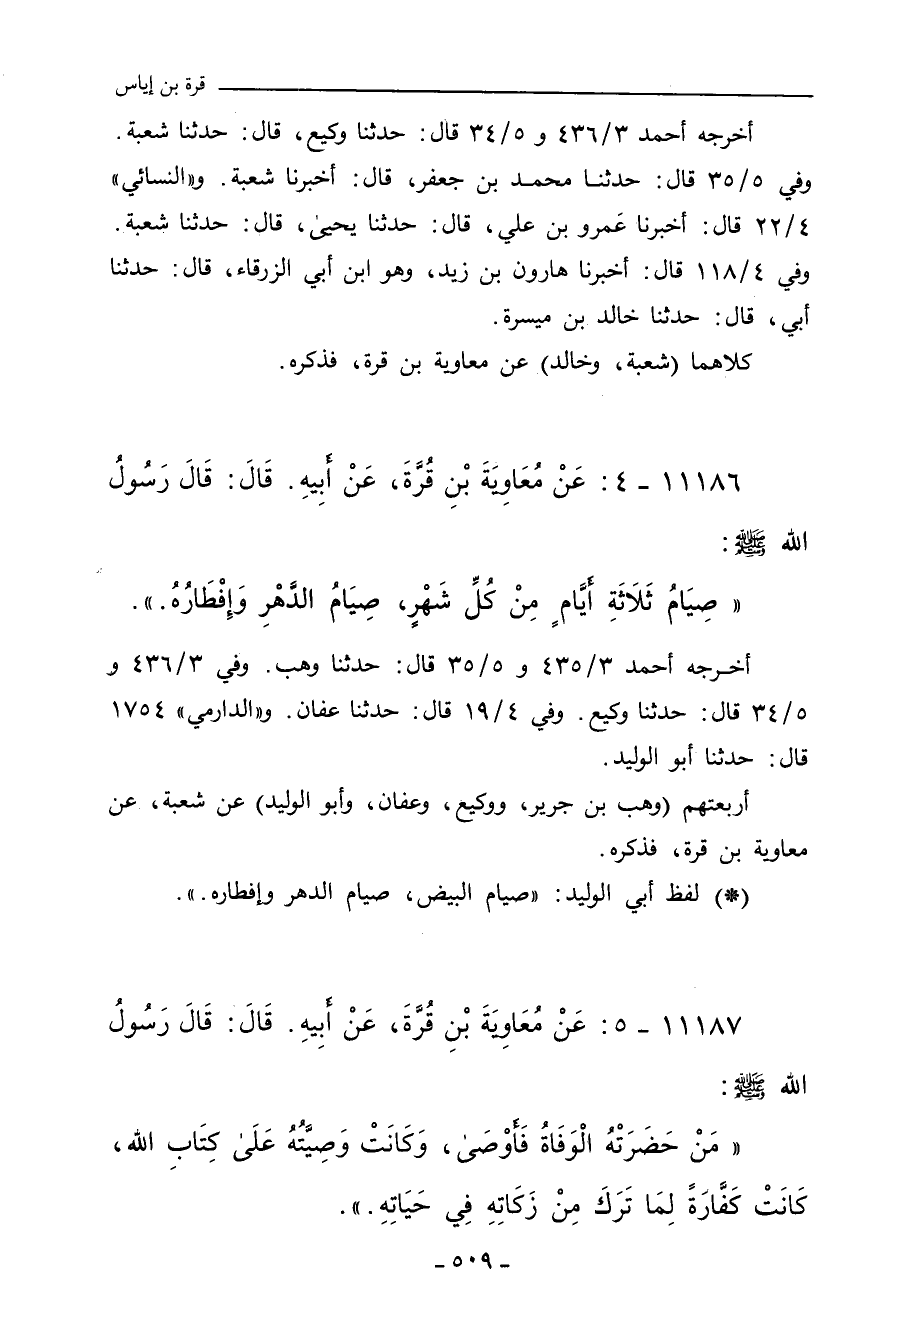 قرة بن إياس
أخرجه أحمد ٤٣٦/٣ و ٣٤/٥ قال: حدثنا وكيع، قال: حدثنا شعبة.
وفي ٣٥/٥ قال: حدثنا محمد بن جعفر، قال: أخبرنا شعبة. و«النسائي»
٢٢/٤ قال: أخبرنا عَمرو بن علي، قال: حدثنا يحيىٰ، قال: حدثنا شعبة.
وفي ١١٨/٤ قال: أخبرنا هارون بن زيد، وهو ابن أبي الزرقاء، قال: حدثنا
أبي، قال: حدثنا خالد بن ميسرة.
كلاهما (شعبة، وخالد) عن معاوية بن قرة، فذكره.
١١١٨٦ - ٤: عَنْ مُعَاوِيَةَ بْنِ قُرَّةَ، عَنْ أَبِيهِ. قَالَ: قَالَ رَسُولُ
الله ﷺ:
« صِيَامُ ثَلَاثَةِ أَيَّامٍ مِنْ كُلِّ شَهْرٍ، صِيَامُ الدَّهْرِ وَإِفْطَارُهُ.».
أخرجه أحمد ٤٣٥/٣ و ٣٥/٥ قال: حدثنا وهب. وفي ٤٣٦/٣ و
٣٤/٥ قال: حدثنا وكيع. وفي ١٩/٤ قال: حدثنا عفان. و«الدارمي» ١٧٥٤
قال: حدثنا أبو الوليد.
أربعتهم (وهب بن جرير، ووكيع، وعفان، وأبو الوليد) عن شعبة، عن
معاوية بن قرة، فذكره.
(*) لفظ أبي الوليد: «صيام البيض، صيام الدهر وإفطاره.».
١١١٨٧ - ٥: عَنْ مُعَاوِيَةَ بْنِ قُرَّةَ، عَنْ أَبِيهِ. قَالَ: قَالَ رَسُولُ
الله ﷺ:
« مَنْ حَضَرَتْهُ الْوَفَاةُ فَأَوْصَىٰ، وَكَانَتْ وَصِيَّتُهُ عَلَىٰ كِتَابِ الله،
كَانَتْ كَفَّارَةً لِمَا تَرَكَ مِنْ زَكَاتِهِ فِي حَيَاتِهِ.».
- ٥٠٩ -